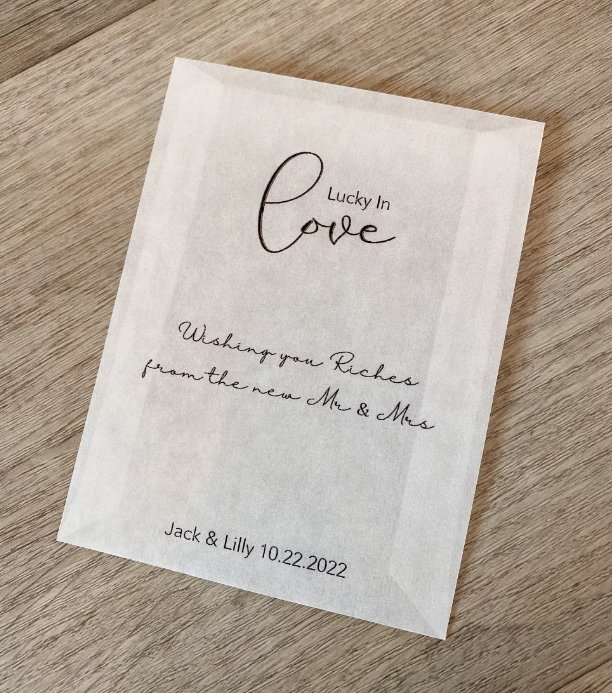 Lucky In
Love
Wishing you Riches
from the new Mr & Mrs
Jack & Lilly 10.22.2022